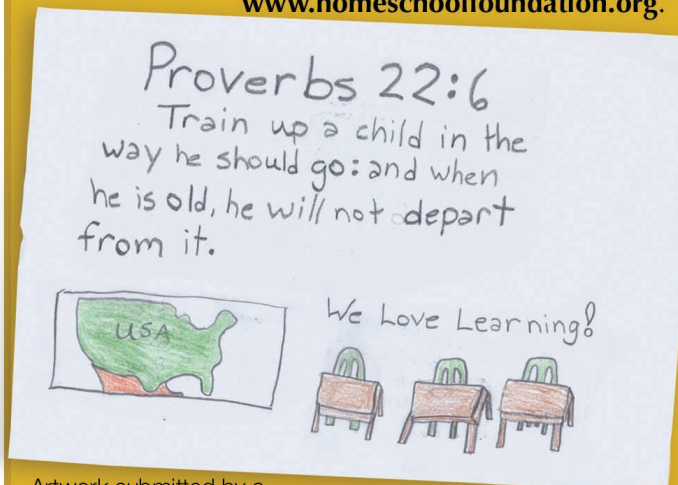 www.homeschoolfoundation.org.
Proverbs 22:6
Train up a child in the
way he should go: and when
he is old, he will not depart
from it.
USA
We Love Learning!
Artwork submitted by a